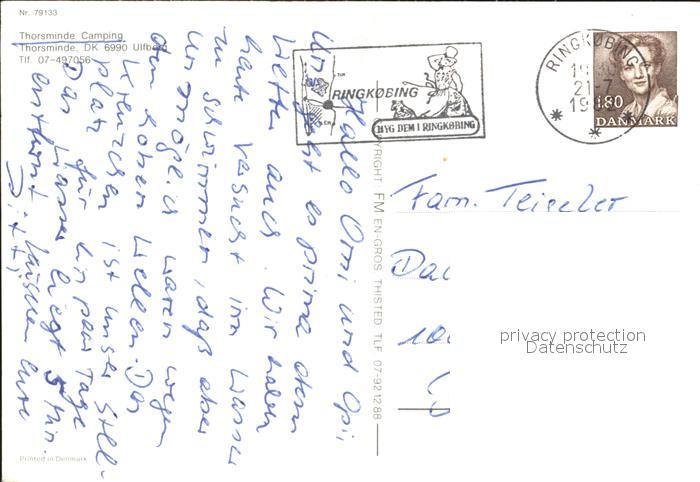 Nr. 79133
Thorsminde Camping
Thorsminde, DK 6990 Ulfborg
Tlf. 07-497056
RINGKØBING
HYG DEM I RINGKØBING
RINGKØBING
19
21.-7
19
1.80
DANMARK
Hallo Omi und Opi,
Uns geht es prima dem
Wetter auch. Wir haben
heute versucht im Wasser
zu schwimmen, daß aber
unmöglich waren wegen
den hohen Wellen. Das
Kreuzchen ist unser Stell-
platz für ein paar Tage
Das Wasser liegt 5 Min.
entfernt. Tschüschen Eure
COPYRIGHT FM EN-GROS THISTED TLF 07-921288
Fam. Teischer
privacy protection
Datenschutz
Printed in Denmark